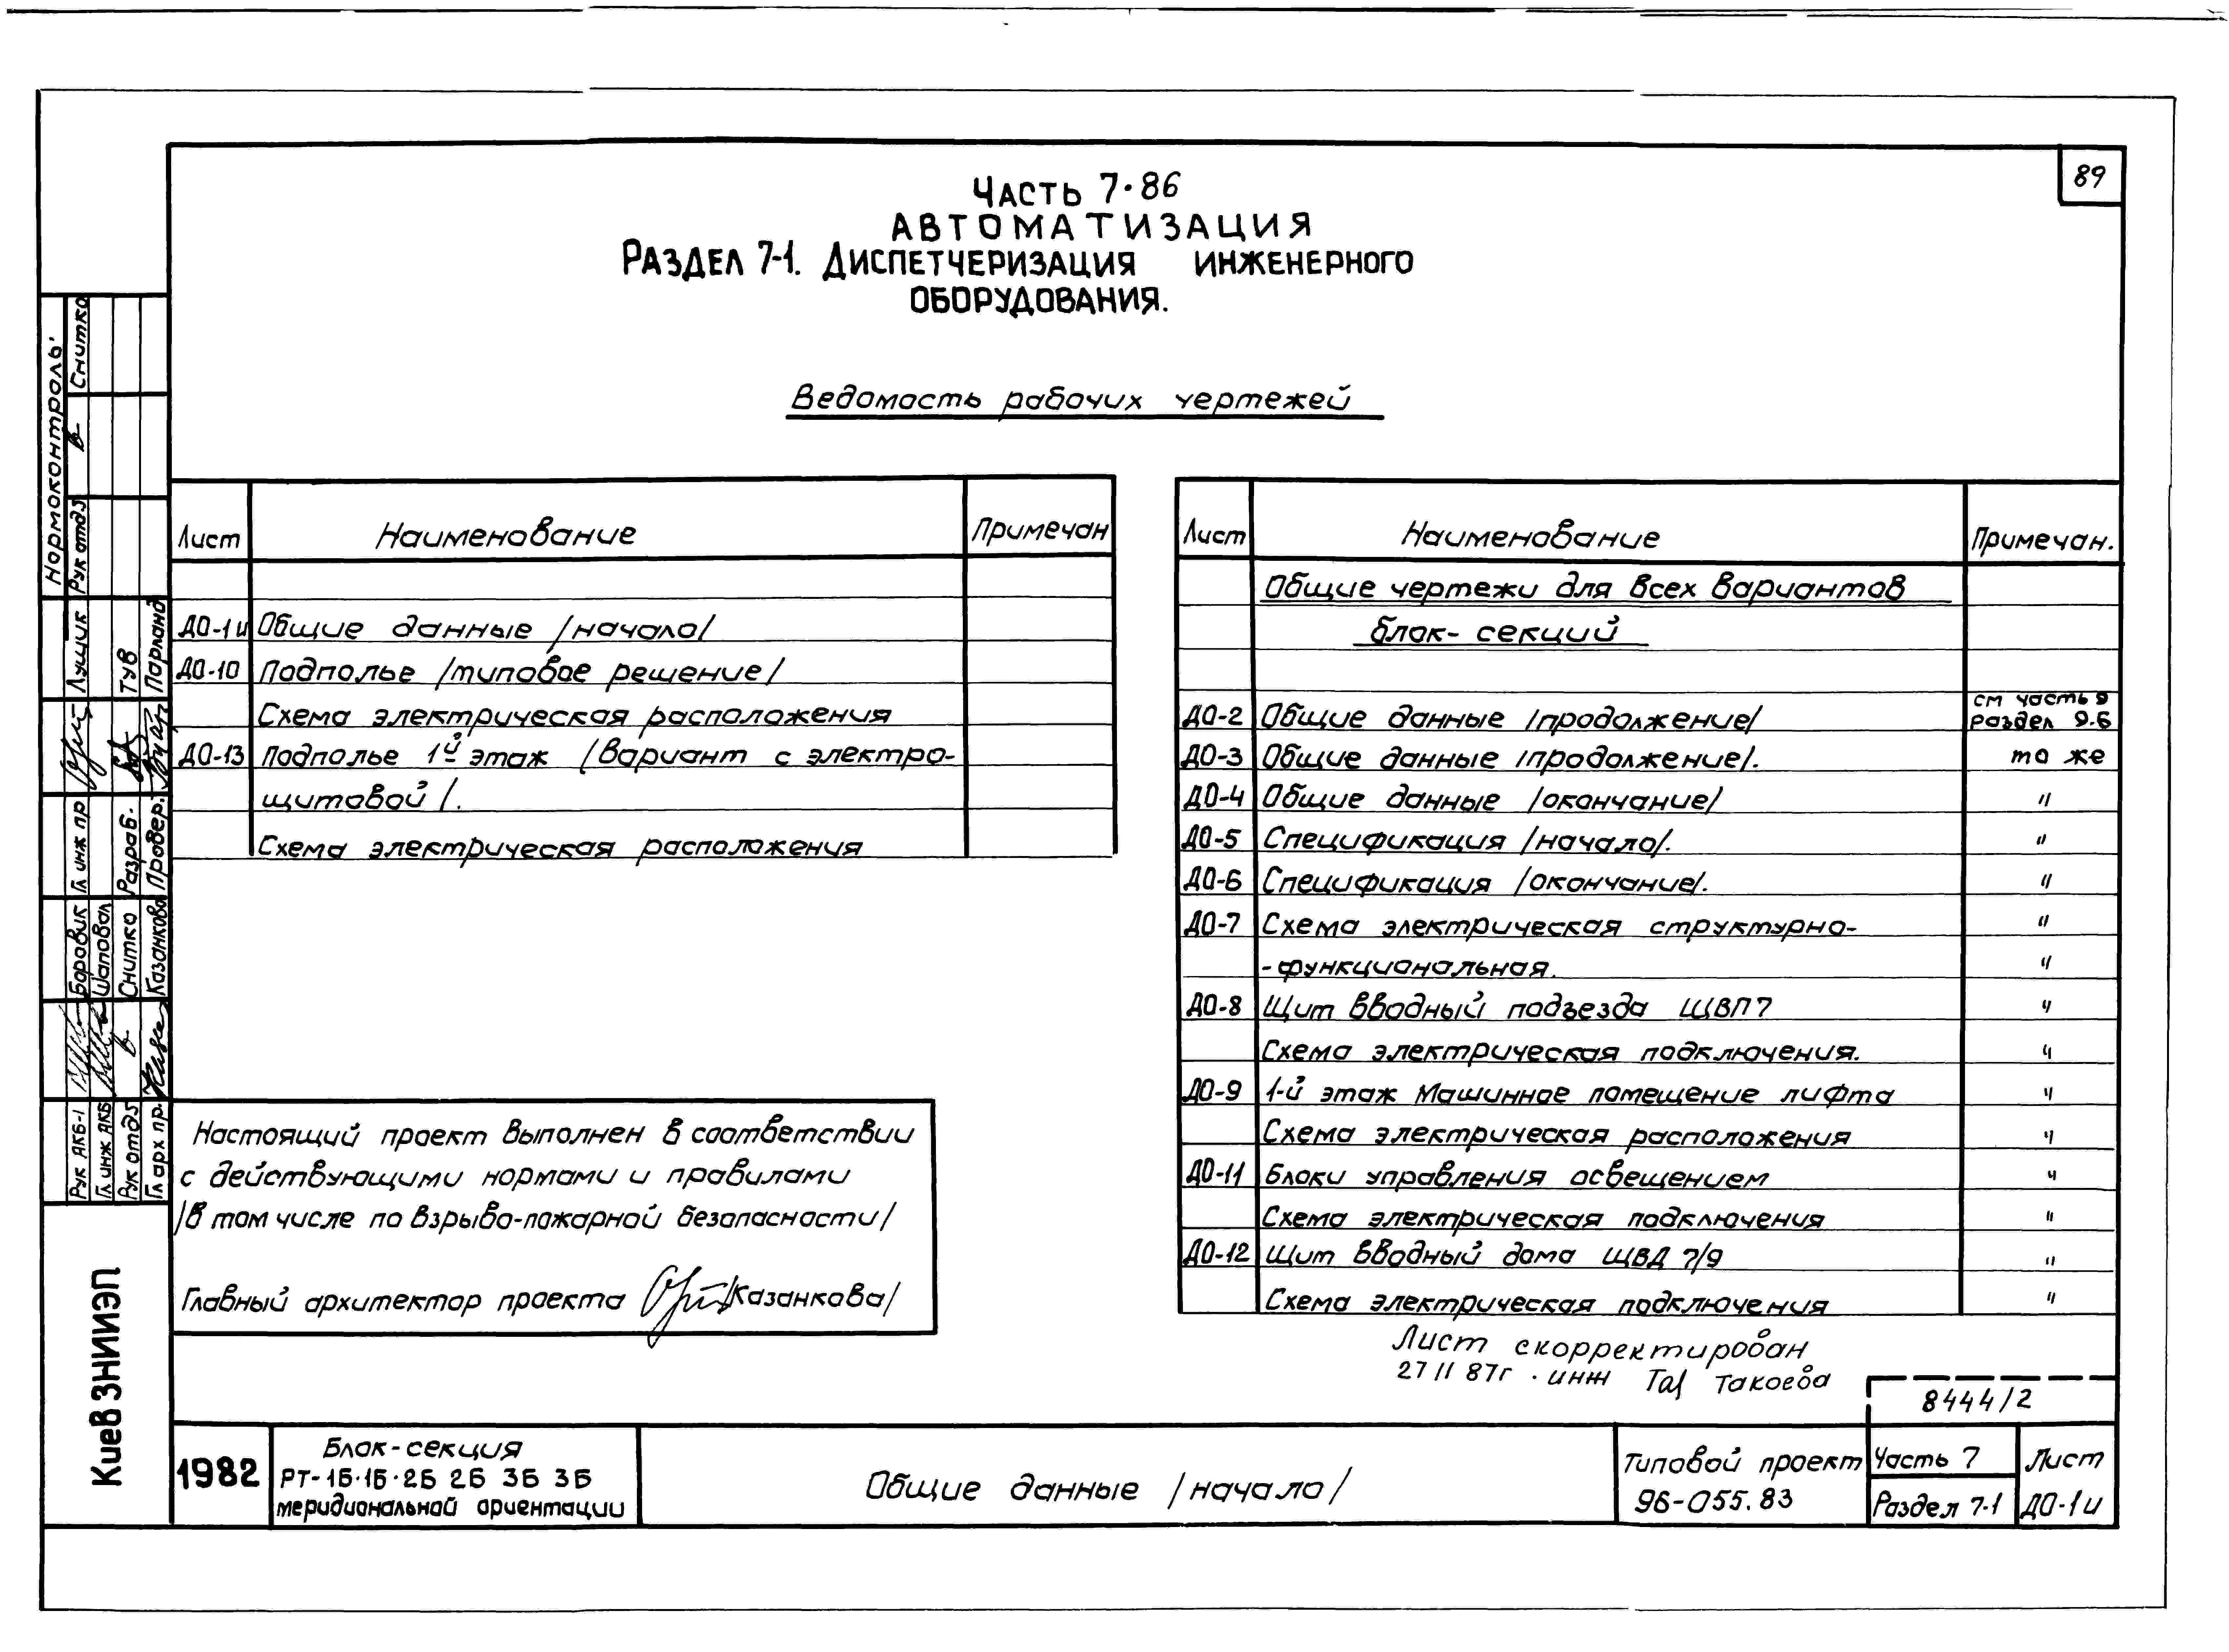 89
Часть 7·86
Автоматизация
Раздел 7-1. Диспетчеризация инженерного
оборудования.
Ведомость рабочих чертежей
Лист Наименование Примечан
ДО-1и Общие данные /начало/
ДО-10 Подполье /типовое решение/
Схема электрическая расположения
ДО-13 Подполье 1й этаж /вариант с электро-
щитовой/.
Схема электрическая расположения
Лист Наименование Примечан.
Общие чертежи для всех вариантов
блок-секций
ДО-2 Общие данные /продолжение/ см часть 9 раздел 9.6
ДО-3 Общие данные /продолжение/. то же
ДО-4 Общие данные /окончание/ "
ДО-5 Спецификация /начало/. "
ДО-6 Спецификация /окончание/. "
ДО-7 Схема электрическая структурно- "
-функциональная. "
ДО-8 Щит вводный подъезда ЩВП7 "
Схема электрическая подключения. "
ДО-9 1-й этаж Машинное помещение лифта "
Схема электрическая расположения "
ДО-11 Блоки управления освещением "
Схема электрическая подключения "
ДО-12 Щит вводный дома ЩВД 7/9 "
Схема электрическая подключения "
Настоящий проект выполнен в соответствии
с действующими нормами и правилами
/в том числе по взрыво-пожарной безопасности/
Главный архитектор проекта /Казанкова/
Лист скорректирован
27 11 87г. инж Такоева
8444/2
1982
Блок-секция
РТ-1Б·1Б·2Б 2Б 3Б 3Б
меридиональной ориентации
Общие данные /начало/
Типовой проект
96-055.83
Часть 7
Раздел 7-1
Лист
ДО-1и
Нормоконтроль
Рук отд5 Снитко
Гл инж пр Лущик
Разраб. Тув
Провер. Парланд
Рук АКБ-1 Боровик
Гл инж АКБ Шаповал
Рук отд5 Снитко
Гл арх пр. Казанкова
КиевЗНИИЭП